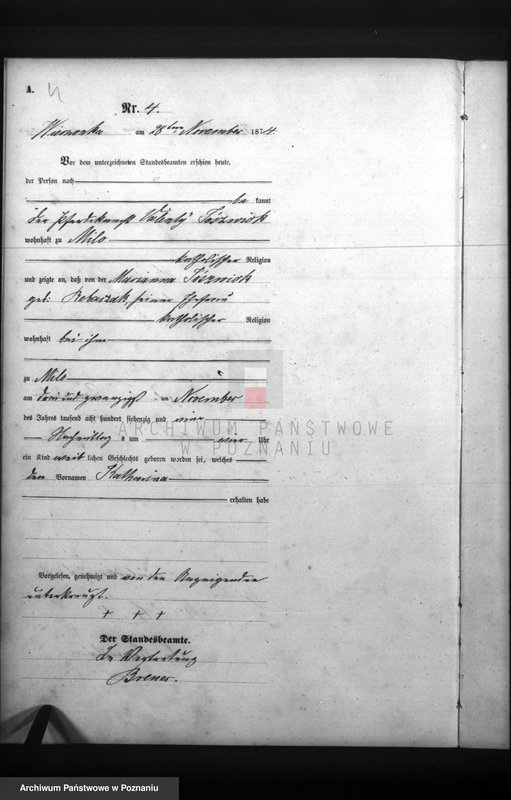 A. 4
Nr. 4.
am 28ten November 1874
Vor dem unterzeichneten Standesbeamten erschien heute,
der Person nach
be kannt
der Pferdeknecht
wohnhaft zu Milo
katholischer Religion
und zeigte an, daß von der Marianna
geb. seiner Ehefrau
katholischer Religion
wohnhaft bei ihm
zu Milo
am drei und zwanzigst en November
des Jahres tausend acht hundert siebenzig und vier
Nachmittag s um vier Uhr
ein Kind weib lichen Geschlechts geboren worden sei, welches
den Vornamen Katharina
erhalten habe
ARCHIWUM PAŃSTWOWE
W POZNANIU
Vorgelesen, genehmigt und von dem Anzeigenden
unterkreuzt.
+ + +
Der Standesbeamte.
In Vertretung
Archiwum Państwowe w Poznaniu